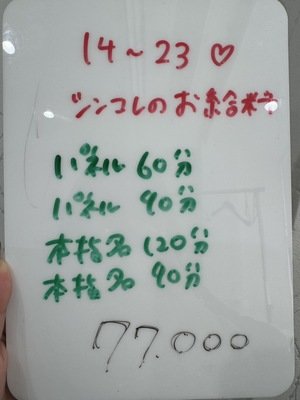 14～23♡
シンコレのお給料
パネル 60分
パネル 90分
本指名 120分
本指名 90分
77.000